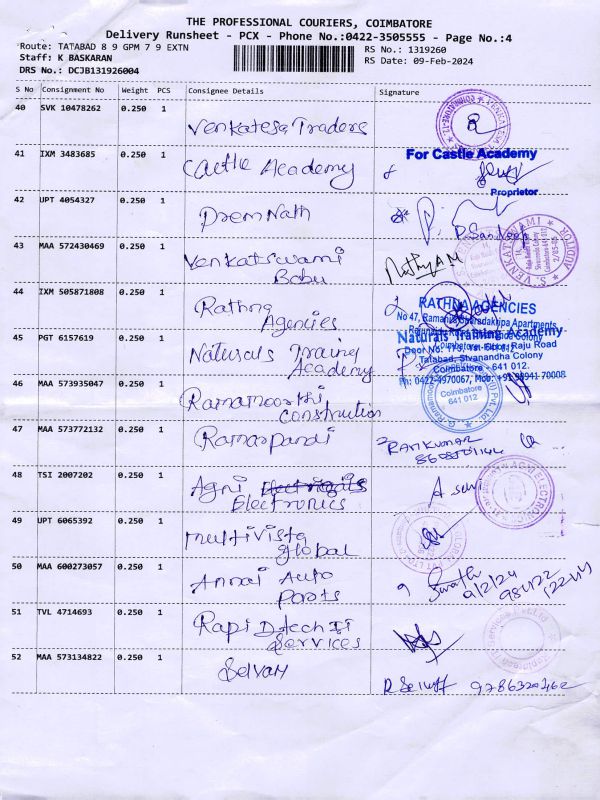 THE PROFESSIONAL COURIERS, COIMBATORE
Delivery Runsheet - PCX - Phone No.:0422-3505555 - Page No.:4
Route: TATABAD 8 9 GPM 7 9 EXTN RS No.: 1319260
Staff: K BASKARAN RS Date: 09-Feb-2024
DRS No.: DCJB131926004
S No Consignment No Weight PCS Consignee Details Signature
40 SVK 10478262 0.250 1
Venkatesa Traders
41 IXM 3483685 0.250 1
Castle Academy
For Castle Academy
Proprietor
42 UPT 4054327 0.250 1
Prem Nath
43 MAA 572430469 0.250 1
Venkatswami
Babu
44 IXM 505871808 0.250 1
Rathna
Agencies
RATHNA AGENCIES
45 PGT 6157619 0.250 1
Naturals Traing
Academy
Naturals Training Academy
Tatabad, Sivanandha Colony
Coimbatore - 641 012.
Ph: 0422-4970067, Mob: +91 98941 70008
46 MAA 573935047 0.250 1
Ramamoorthi
Constrution
Coimbatore
641 012
47 MAA 573772132 0.250 1
Ramarpandi
RAMKUMAR
48 TSI 2007202 0.250 1
Agni
Electronics
49 UPT 6065392 0.250 1
multivista
global
50 MAA 600273057 0.250 1
Annai Auto
Parts
9/2/24
51 TVL 4714693 0.250 1
Services
52 MAA 573134822 0.250 1
Selvam
9786320462